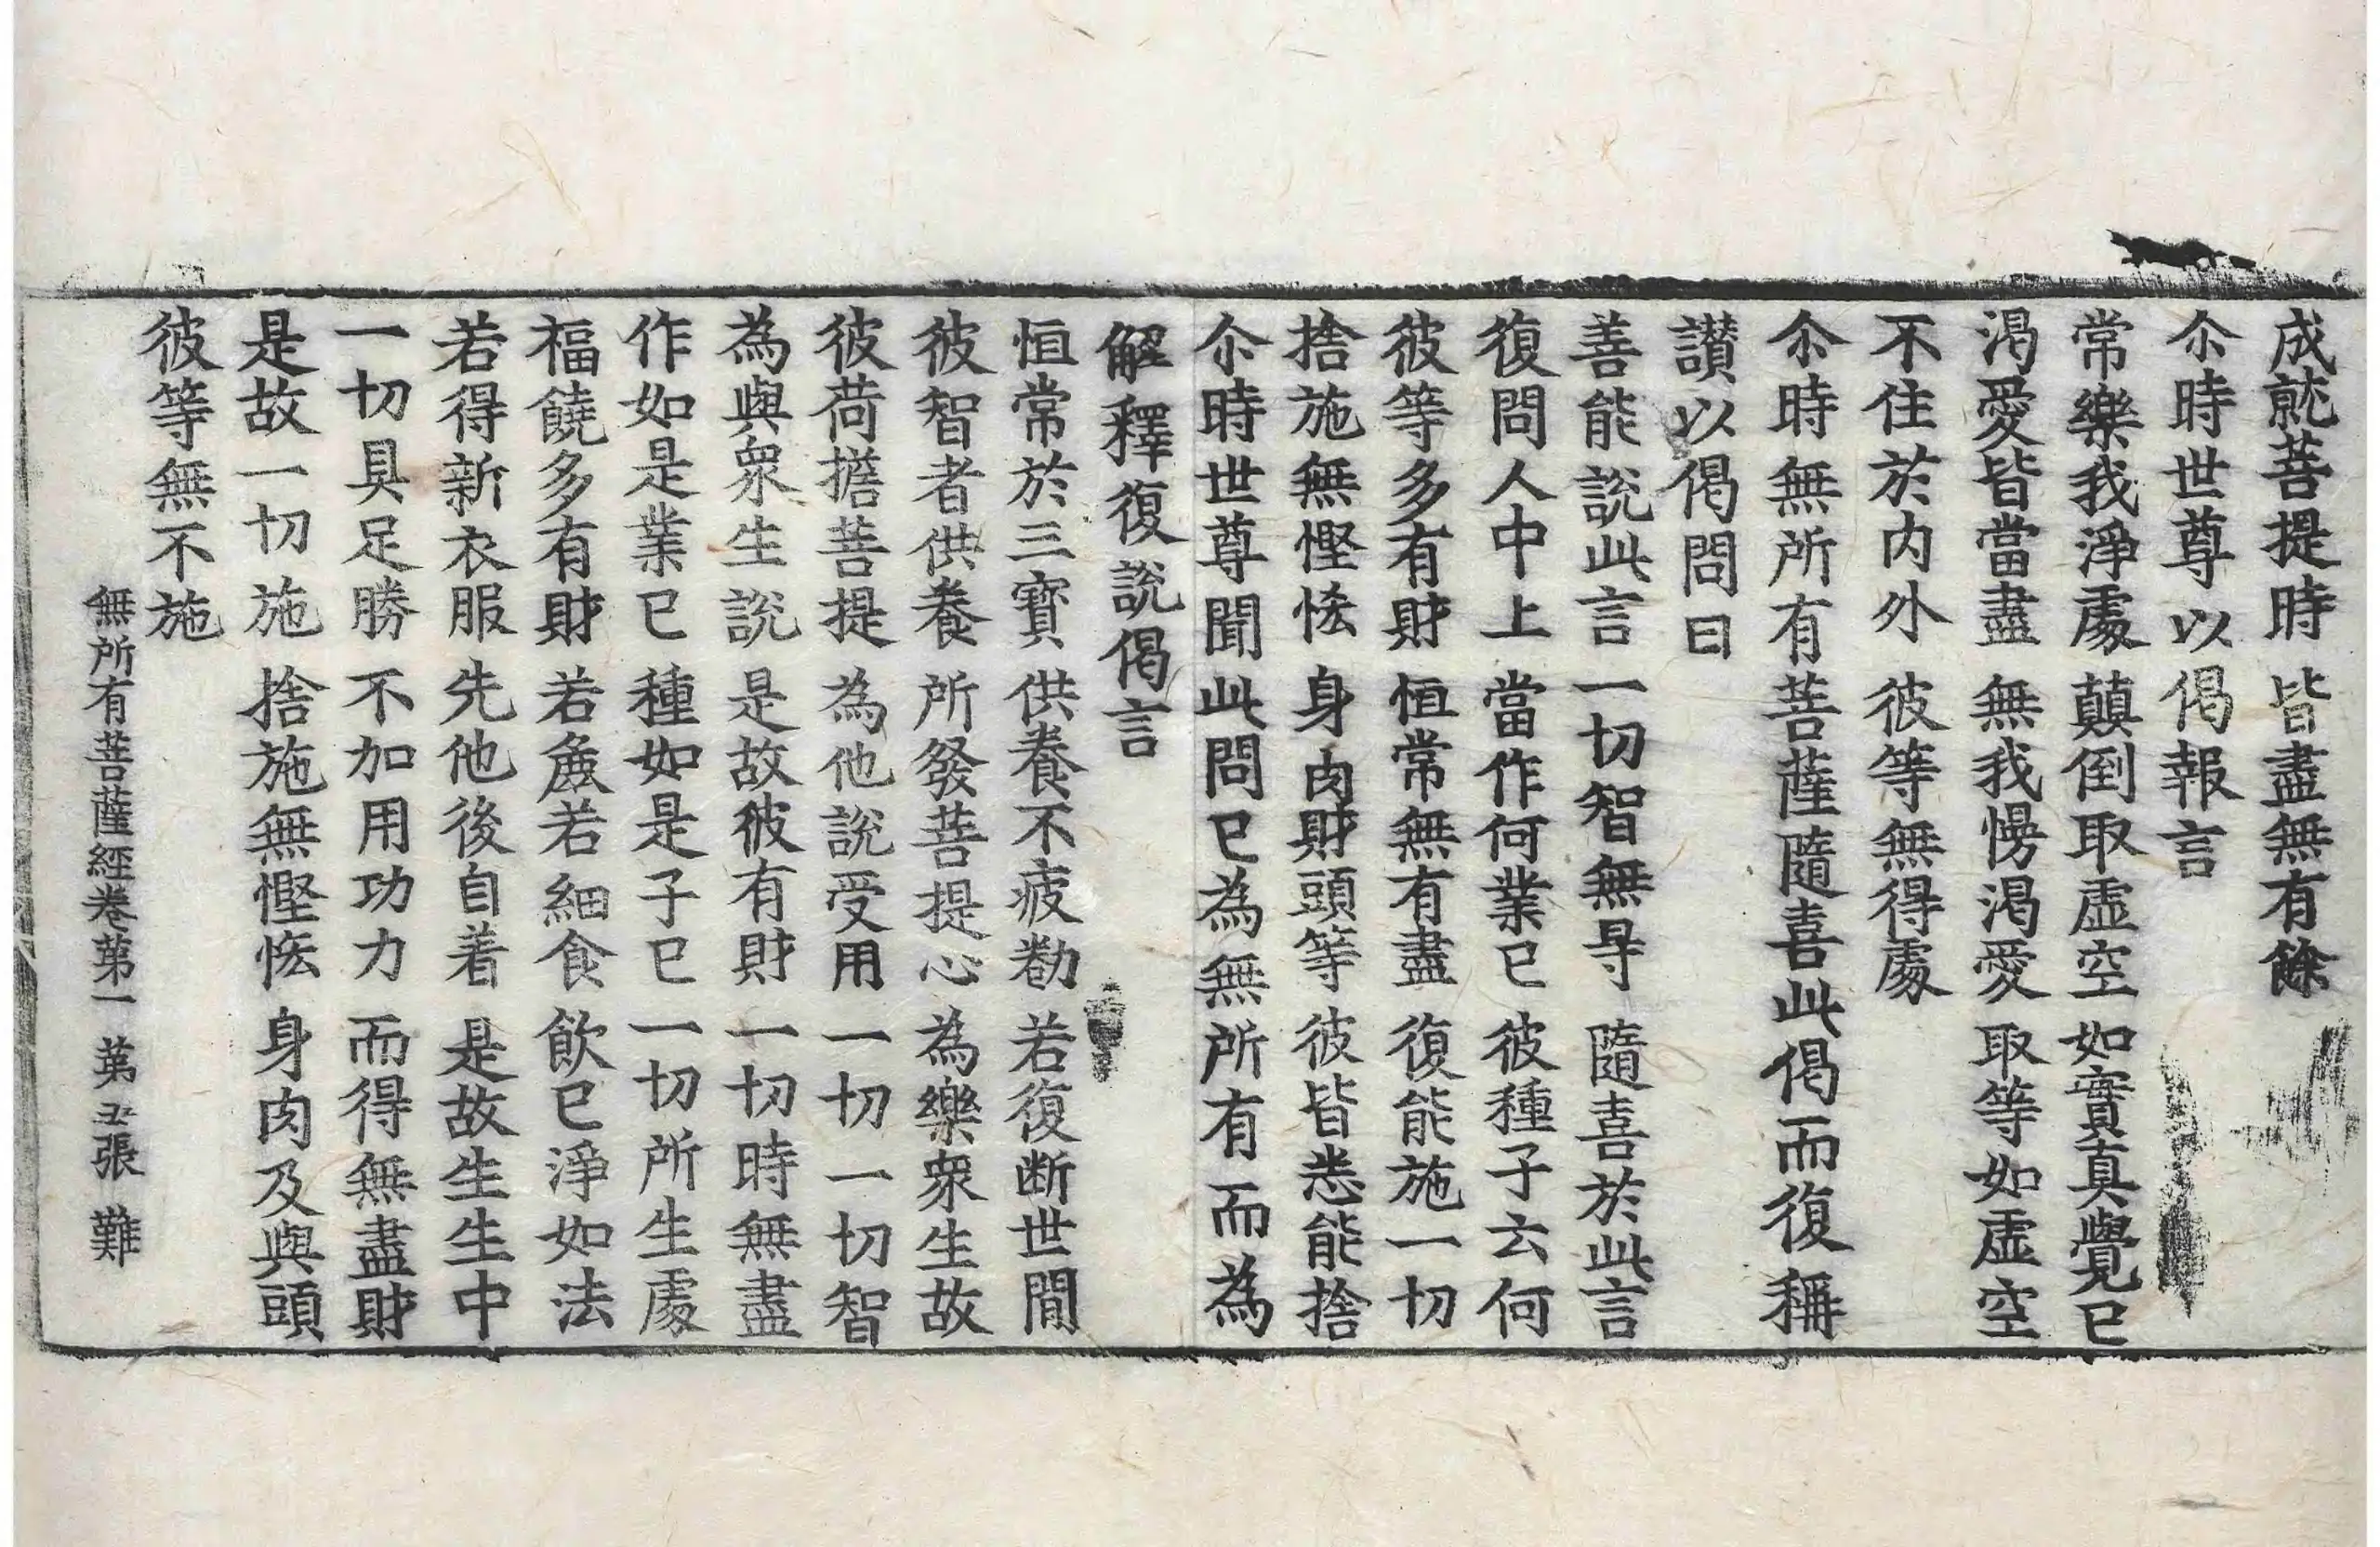 成就菩提時　皆盡無有餘
尒時世尊以偈報言
常樂我淨處　顛倒取虛空　如實真覺已
渴愛皆當盡　無我慢渴愛　取等如虛空
不住於內外　彼等無得處
尒時無所有菩薩隨喜此偈而復稱
讃以偈問曰
善能說此言　一切智無㝵　隨喜於此言
復問人中上　當作何業已　彼種子云何
彼等多有財　恒常無有盡　復能施一切
捨施無慳悋　身肉財頭等　彼皆悉能捨
尒時世尊聞此問已為無所有而為
解釋復說偈言
恒常於三寶　供養不疲勌　若復断世間
彼智者供養　所發菩提心　為樂衆生故
彼荷擔菩提　為他說受用　一切一切智
為與衆生說　是故彼有財　一切時無盡
作如是業已　種如是子已　一切所生處
福饒多有財　若麁若細食　飲已淨如法
若得新衣服　先他後自着　是故生生中
一切具足勝　不加用功力　而得無盡財
是故一切施　捨施無慳悋　身肉及與頭
彼等無不施
無所有菩薩經卷第一　第五張　難